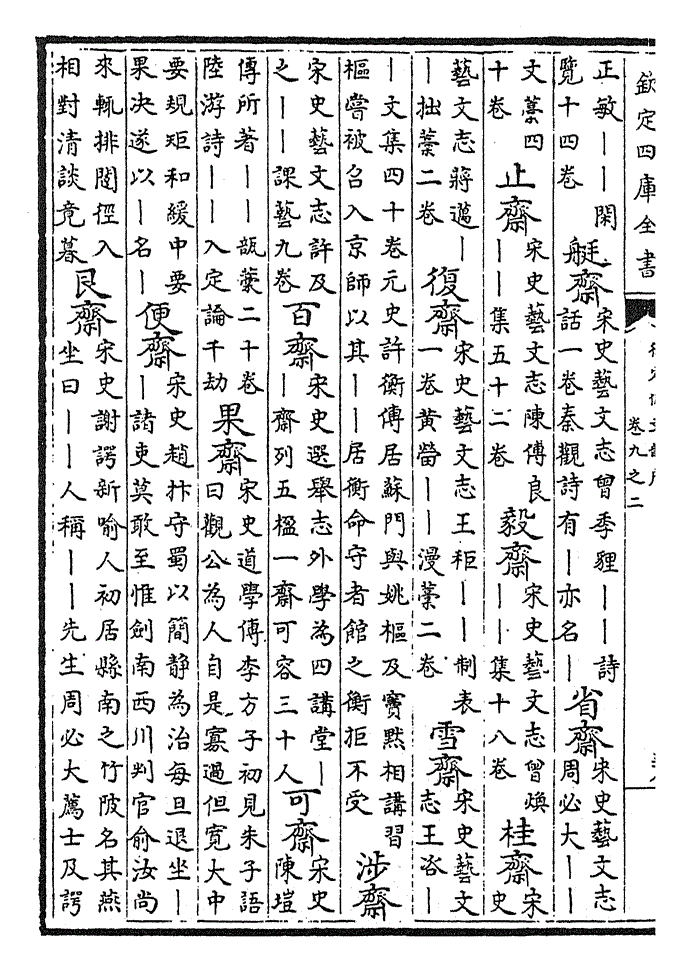 欽定四庫全書
卷九之二
正敏｜｜閑
覽十四卷
艇齋
宋史藝文志曾季貍｜｜詩
話一卷秦觀詩有｜亦名｜
省齋
宋史藝文志
周必大｜｜
文藁四
十卷
止齋
宋史藝文志陳傅良
｜｜集五十二卷
毅齋
宋史藝文志曾煥
｜｜集十八卷
桂齋
宋
史
藝文志蔣邁｜
｜拙藁二卷
復齋
宋史藝文志王秬｜｜制表
一卷黃㽦｜｜漫藁二卷
雪齋
宋史藝文
志王洺｜
｜文集四十卷元史許衡傳居蘇門與姚樞及竇黙相講習
樞嘗被召入京師以其｜｜居衡命守者館之衡拒不受
涉齋
宋史藝文志許及
之｜｜課藝九卷
百齋
宋史選舉志外學為四講堂｜
｜齋列五楹一齋可容三十人
可齋
宋史
陳塏
傳所著｜｜瓿藁二十卷
陸游詩｜｜入定論千劫
果齋
宋史道學傳李方子初見朱子語
曰觀公為人自是寡過但寬大中
要規矩和緩中要
果決遂以｜名｜
便齋
宋史趙抃守蜀以簡静為治每旦退坐｜
｜諸吏莫敢至惟劍南西川判官俞汝尚
來輒排闥徑入
相對清談竟暮
艮齋
宋史謝諤新喻人初居縣南之竹陂名其燕
坐曰｜｜人稱｜｜先生周必大薦士及諤